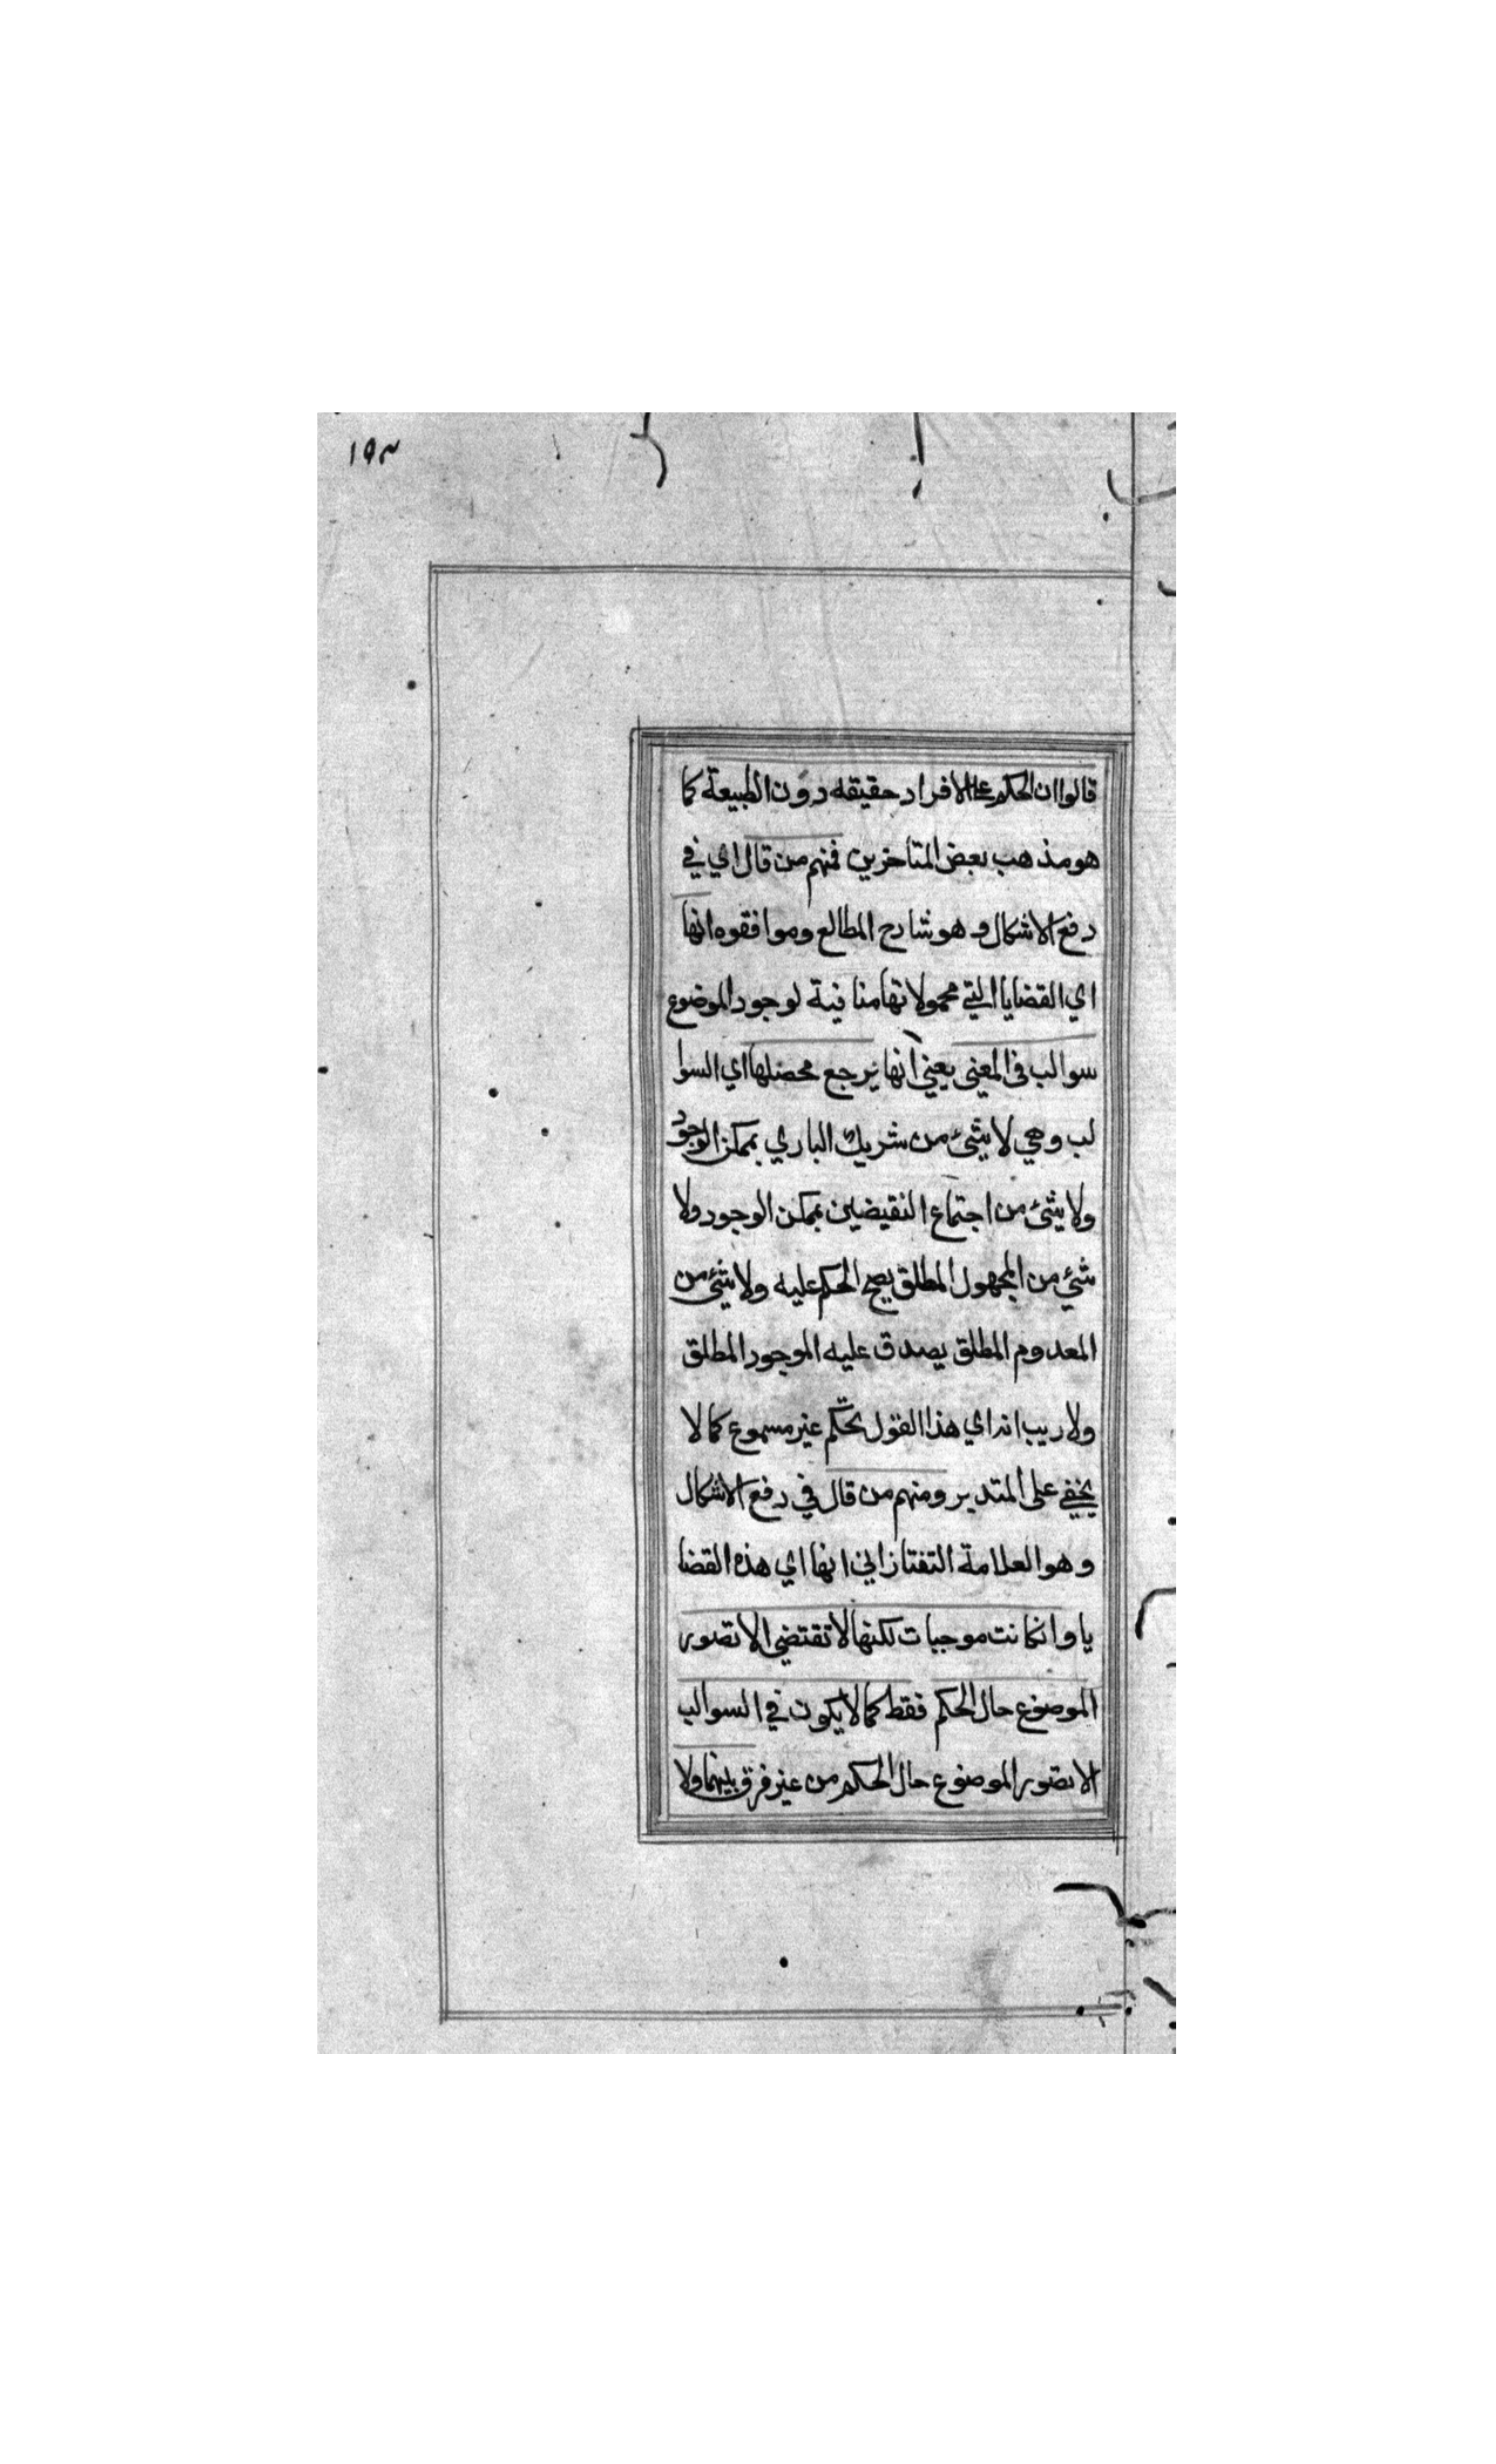 ١٩٣
قالوا ان الحكم على الافراد حقيقه دون الطبيعة كما
هو مذهب بعض المتاخرين فمنهم من قال اي في
دفع الاشكال و هو شارح المطالع وموافقوه انها
اي القضايا التي محمولاتها منافية لوجود الموضوع
سوالب في المعنى يعني انها يرجع محصلها اي السوا
لب وهي لا شئ من شريك الباري بممكن الوجود
ولا شئ من اجتماع النقيضين بممكن الوجود ولا
شئ من المجهول المطلق يصح الحكم عليه ولا شئ من
المعدوم المطلق يصدق عليه الموجود المطلق
ولا ريب انه اي هذا القول تحكّم غير مسموع كما لا
يخفي على المتدبر ومنهم من قال في دفع الاشكال
وهو العلامة التفتازاني انها اي هذه القضا
يا وانكانت موجبات لكنها لا تقتضي الا تصور
الموضوع حال الحكم فقط كما لا يكون في السوالب
الا تصور الموضوع حال الحكم من غير فرق بينهما ولا